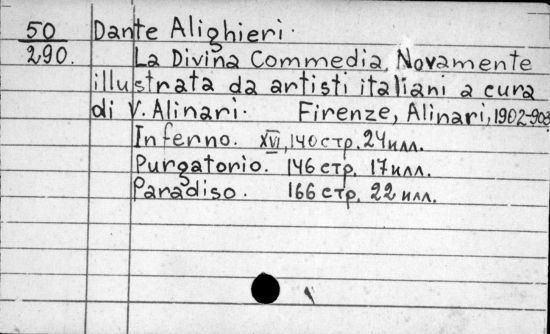 50 Dante Alighieri.
290. La Divina Commedia. Novamente
illustrata da artisti italiani a cura
di V. Alinari. Firenze, Alinari, 1902-903
Inferno. XVI, 140 стр. 24 илл.
Purgatorio. 146 стр. 17 илл.
Paradiso. 166 стр. 22 илл.